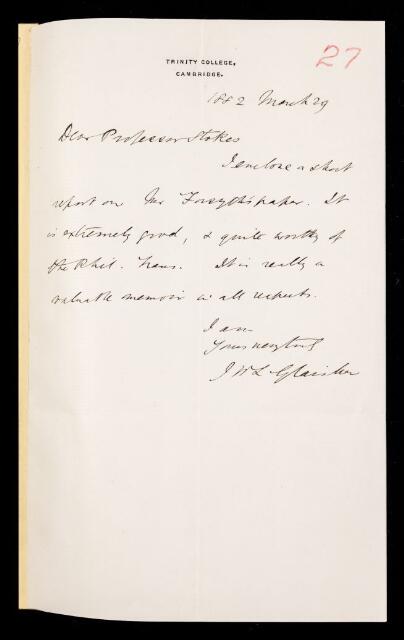 TRINITY COLLEGE,
CAMBRIDGE.
27
1882 March 29
Dear Professor Stokes
I enclose a short
report on Mr Forsyth's paper. It
is extremely good, & quite worthy of
the Phil. Trans. It is really a
valuable memoir in all respects.
I am
Yours very truly
J W L Glaisher